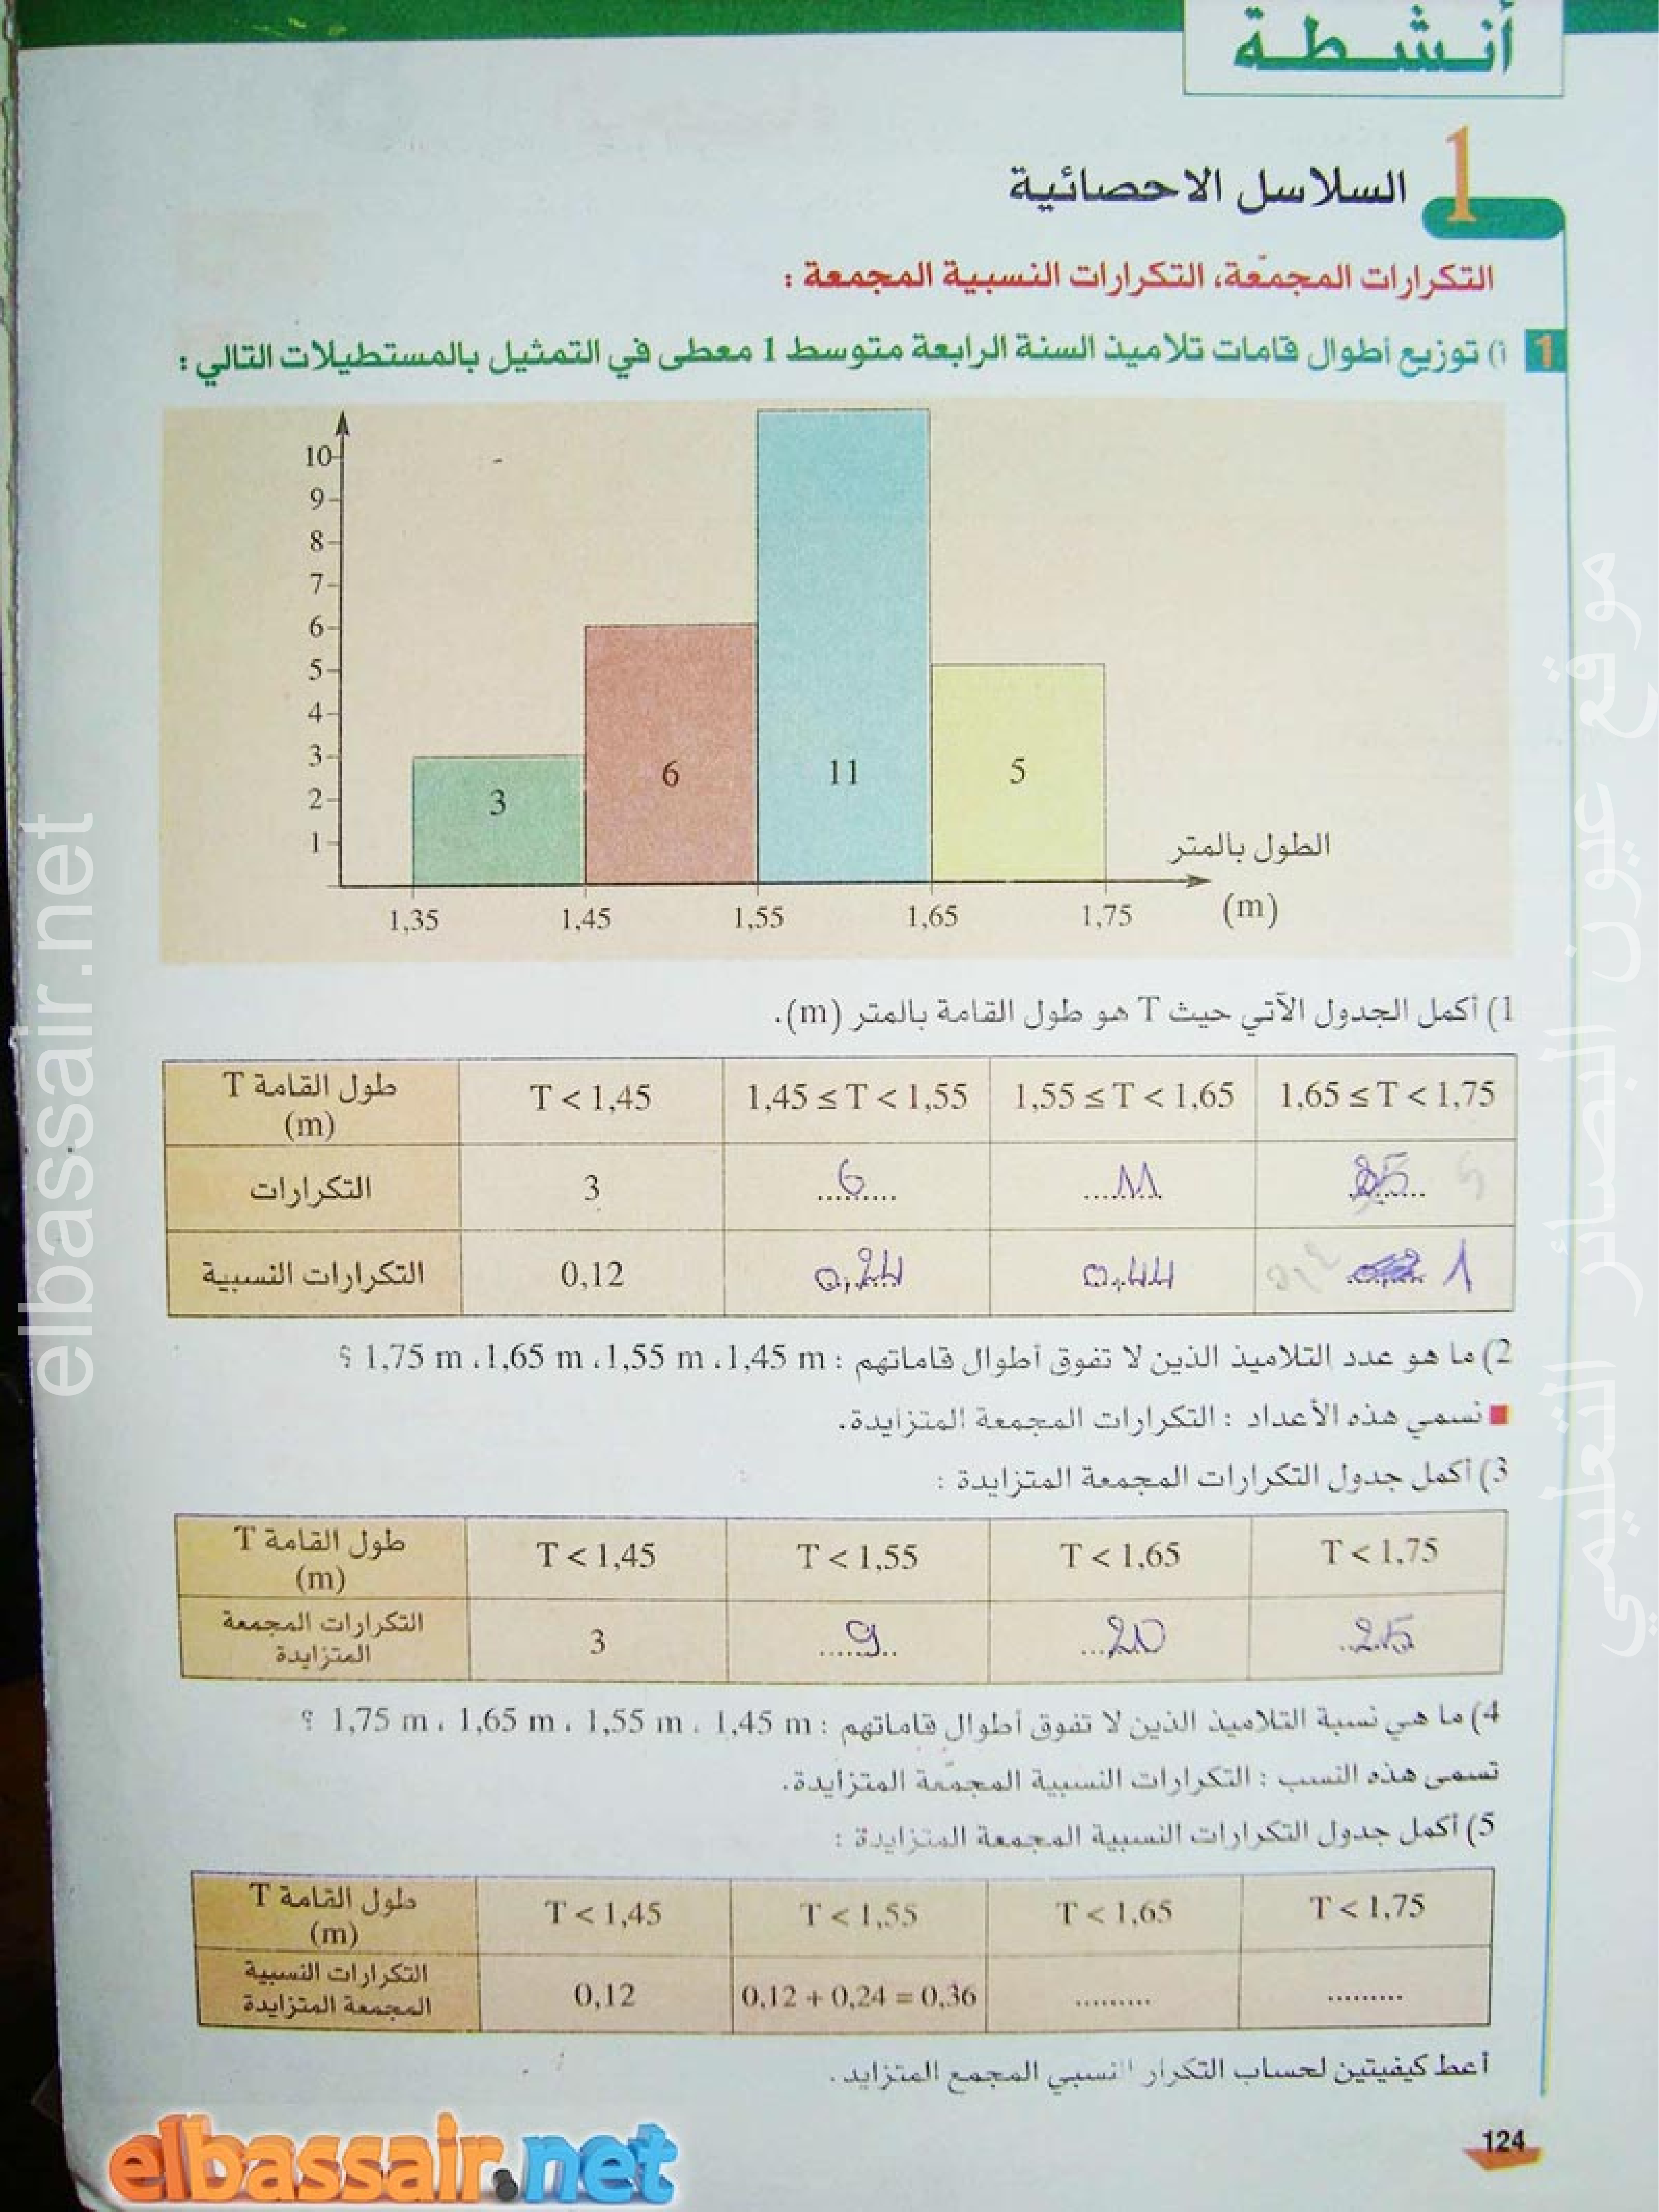 أنشطة
1 السلاسل الاحصائية
التكرارات المجمّعة، التكرارات النسبية المجمعة :
1 أ) توزيع أطوال قامات تلاميذ السنة الرابعة متوسط 1 معطى في التمثيل بالمستطيلات التالي :
10
9
8
7
6
5
4
3
2
1
3 6 11 5
الطول بالمتر
1,35 1,45 1,55 1,65 1,75 (m)
1) أكمل الجدول الآتي حيث T هو طول القامة بالمتر (m).
طول القامة T (m) T < 1,45 1,45 ≤ T < 1,55 1,55 ≤ T < 1,65 1,65 ≤ T < 1,75
التكرارات 3 6 11 5
التكرارات النسبية 0,12 0,24 0,44 1
2) ما هو عدد التلاميذ الذين لا تفوق أطوال قاماتهم : 1,45 m، 1,55 m، 1,65 m، 1,75 m ؟
نسمي هذه الأعداد : التكرارات المجمعة المتزايدة.
3) أكمل جدول التكرارات المجمعة المتزايدة :
طول القامة T (m) T < 1,45 T < 1,55 T < 1,65 T < 1,75
التكرارات المجمعة المتزايدة 3 9 20 25
4) ما هي نسبة التلاميذ الذين لا تفوق أطوال قاماتهم : 1,45 m ، 1,55 m ، 1,65 m ، 1,75 m ؟
تسمى هذه النسب : التكرارات النسبية المجمّعة المتزايدة.
5) أكمل جدول التكرارات النسبية المجمعة المتزايدة :
طول القامة T (m) T < 1,45 T < 1,55 T < 1,65 T < 1,75
التكرارات النسبية المجمعة المتزايدة 0,12 0,12 + 0,24 = 0,36 ......... .........
أعط كيفيتين لحساب التكرار النسبي المجمع المتزايد.
124
elbassair.net
elbassair.net
موقع عيون البصائر التعليمي